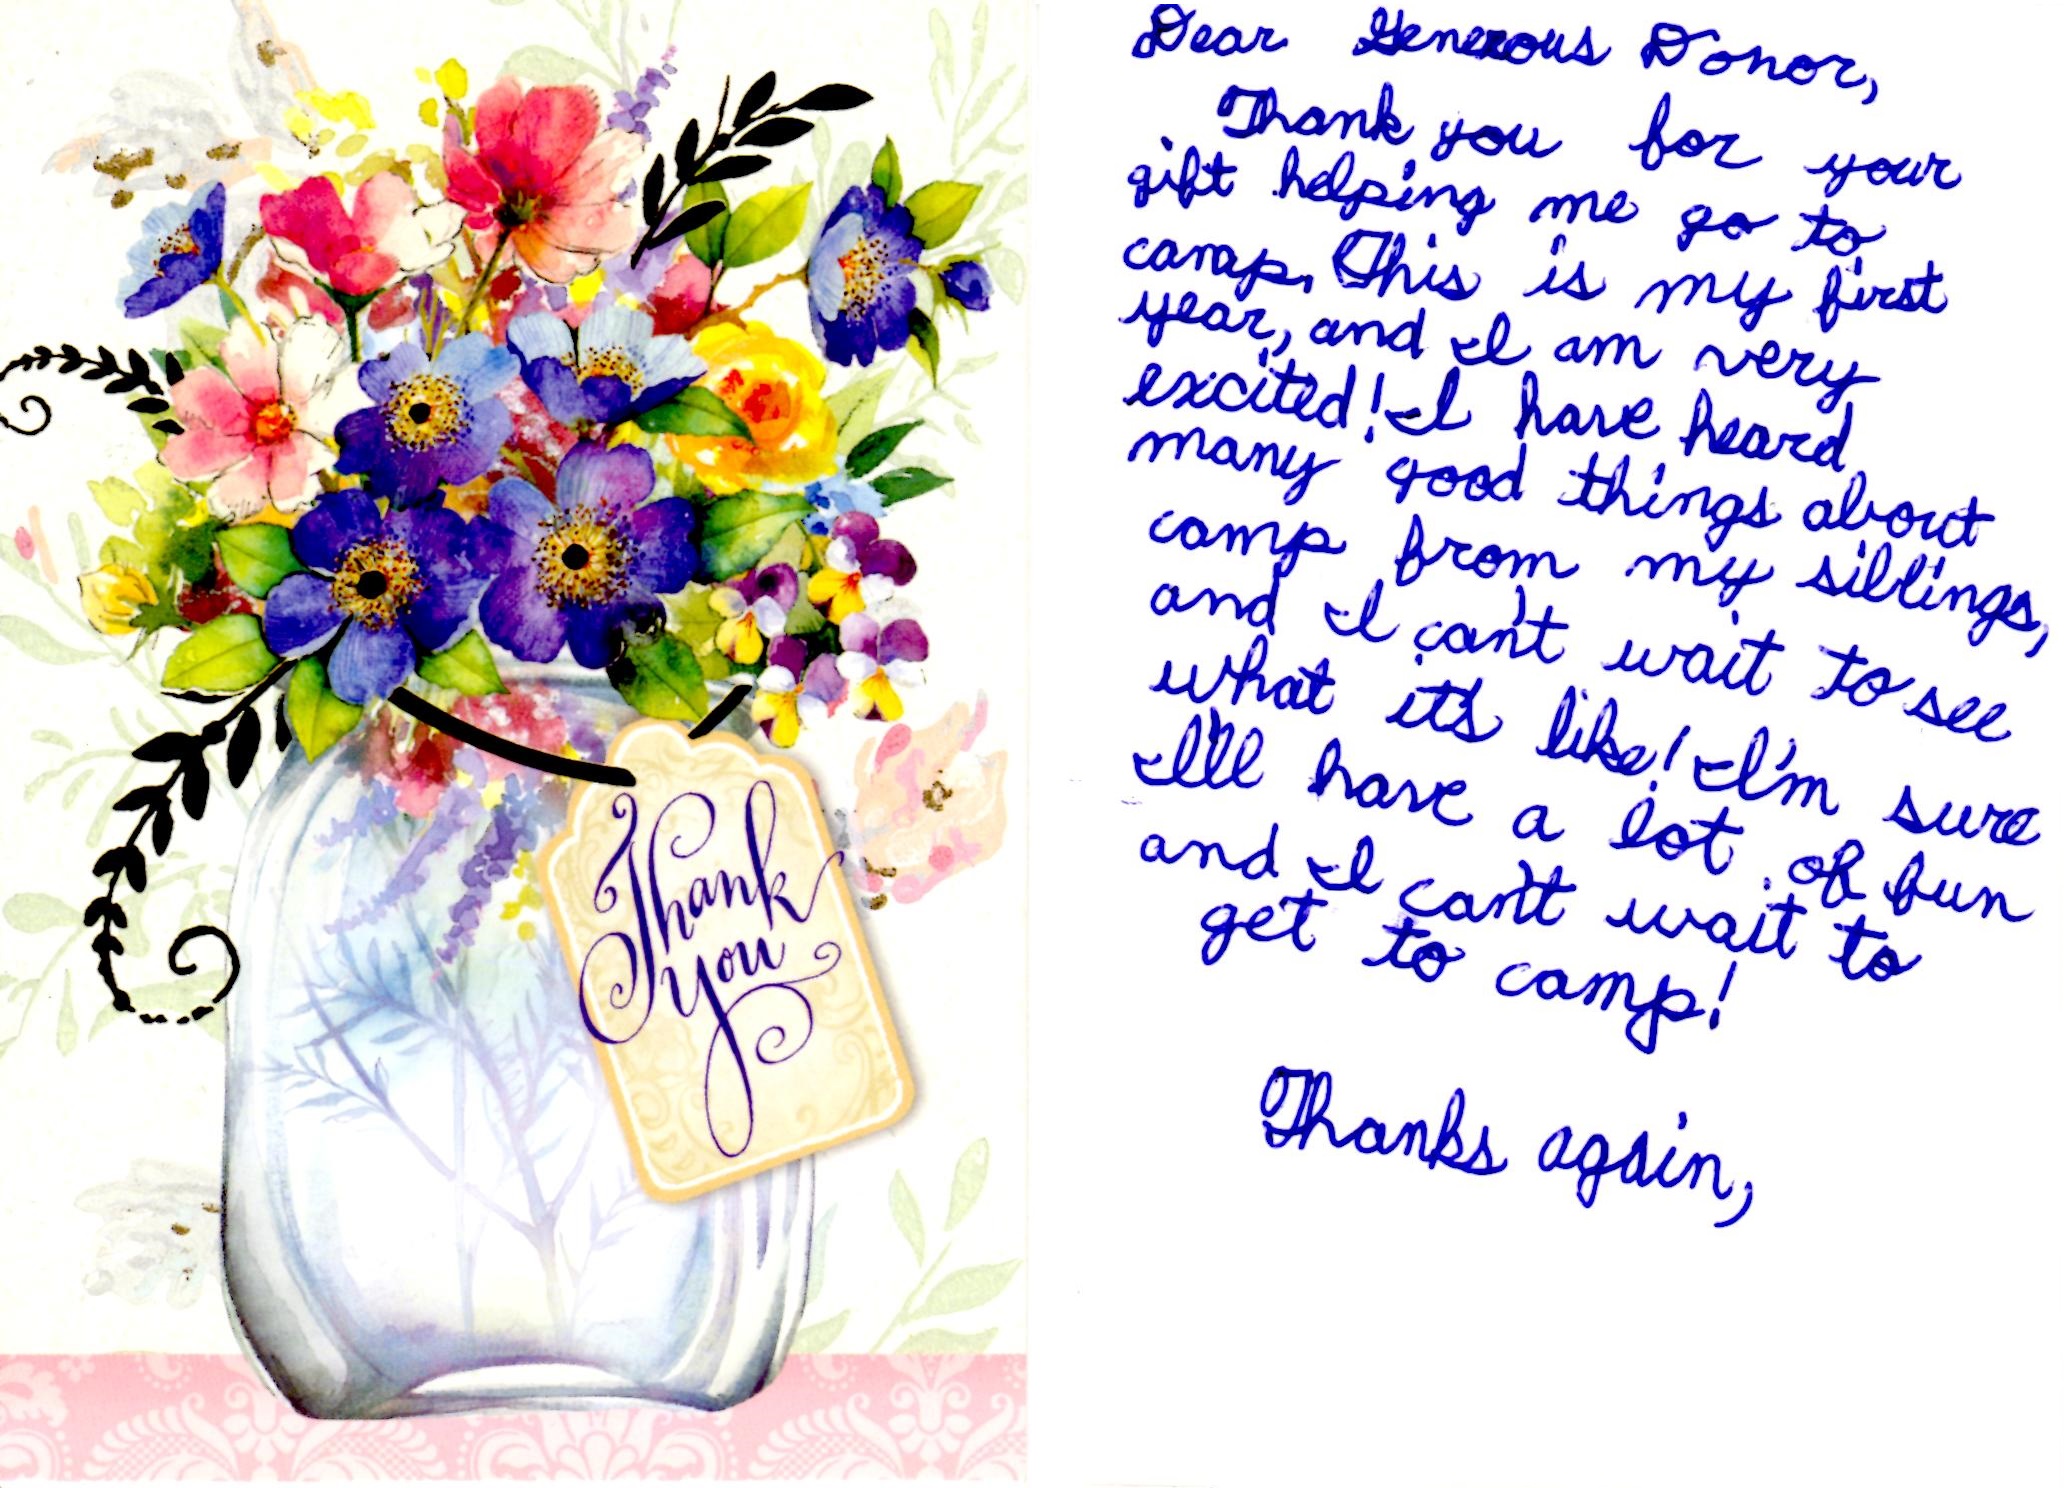 Thank
you
Dear Generous Donor,
Thank you for your
gift helping me go to
camp. This is my first
year, and I am very
excited! I have heard
many good things about
camp from my siblings,
and I can't wait to see
what it's like! I'm sure
I'll have a lot of fun
and I can't wait to
get to camp!
Thanks again,